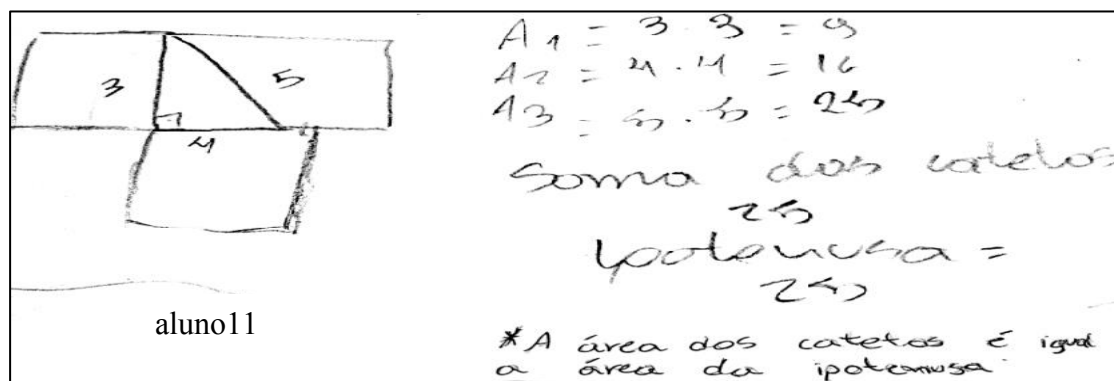 3
5
4
aluno11
A1 = 3 . 3 = 9
A2 = 4 . 4 = 16
A3 = 5 . 5 = 25
Soma dos catetos
25
ipotenusa =
25
*A área dos catetos é igual
a área da ipotenusa